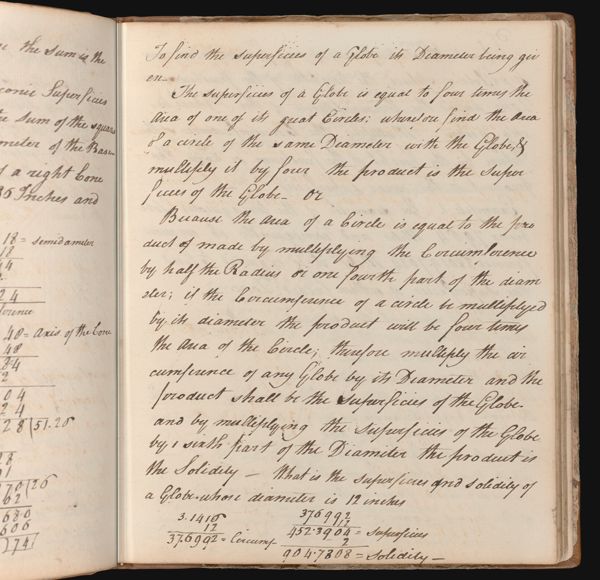 the sum is the
conic Superficies
the sum of the squares
meter of the Base
of a right Cone
36 Inches and
18 = semidiameter
18
44
24
48 = axis of the Cone
48
84
2
04
24
28 | 51.26
70 | 26
62
680
606
174
To find the superficies of a Globe its Diameter being giv
en—
The superficies of a Globe is equal to four times the
area of one of its great Circles: wherefore find the area
of a circle of the same Diameter with the Globe, &
multiply it by four the product is the Super
ficies of the Globe— Or
Because the area of a Circle is equal to the pro
duct of made by multiplying the Circumference
by half the Radius or one fourth part of the diam
eter; if the Circumference of a circle be multiplyed
by its diameter the product will be four times
the area of the Circle; therefore multiply the cir
cumference of any Globe by its Diameter and the
product shall be the Superficies of the Globe—
and by multiplying the Superficies of the Globe
by 1 sixth part of the Diameter the product is
the Solidity — What is the superficies and solidity of
a Globe whose diameter is 12 inches
3.1416
12
37.6992 = Circumf
376992
12
452.3904 = Superficies
2
904.7808 = Solidity —